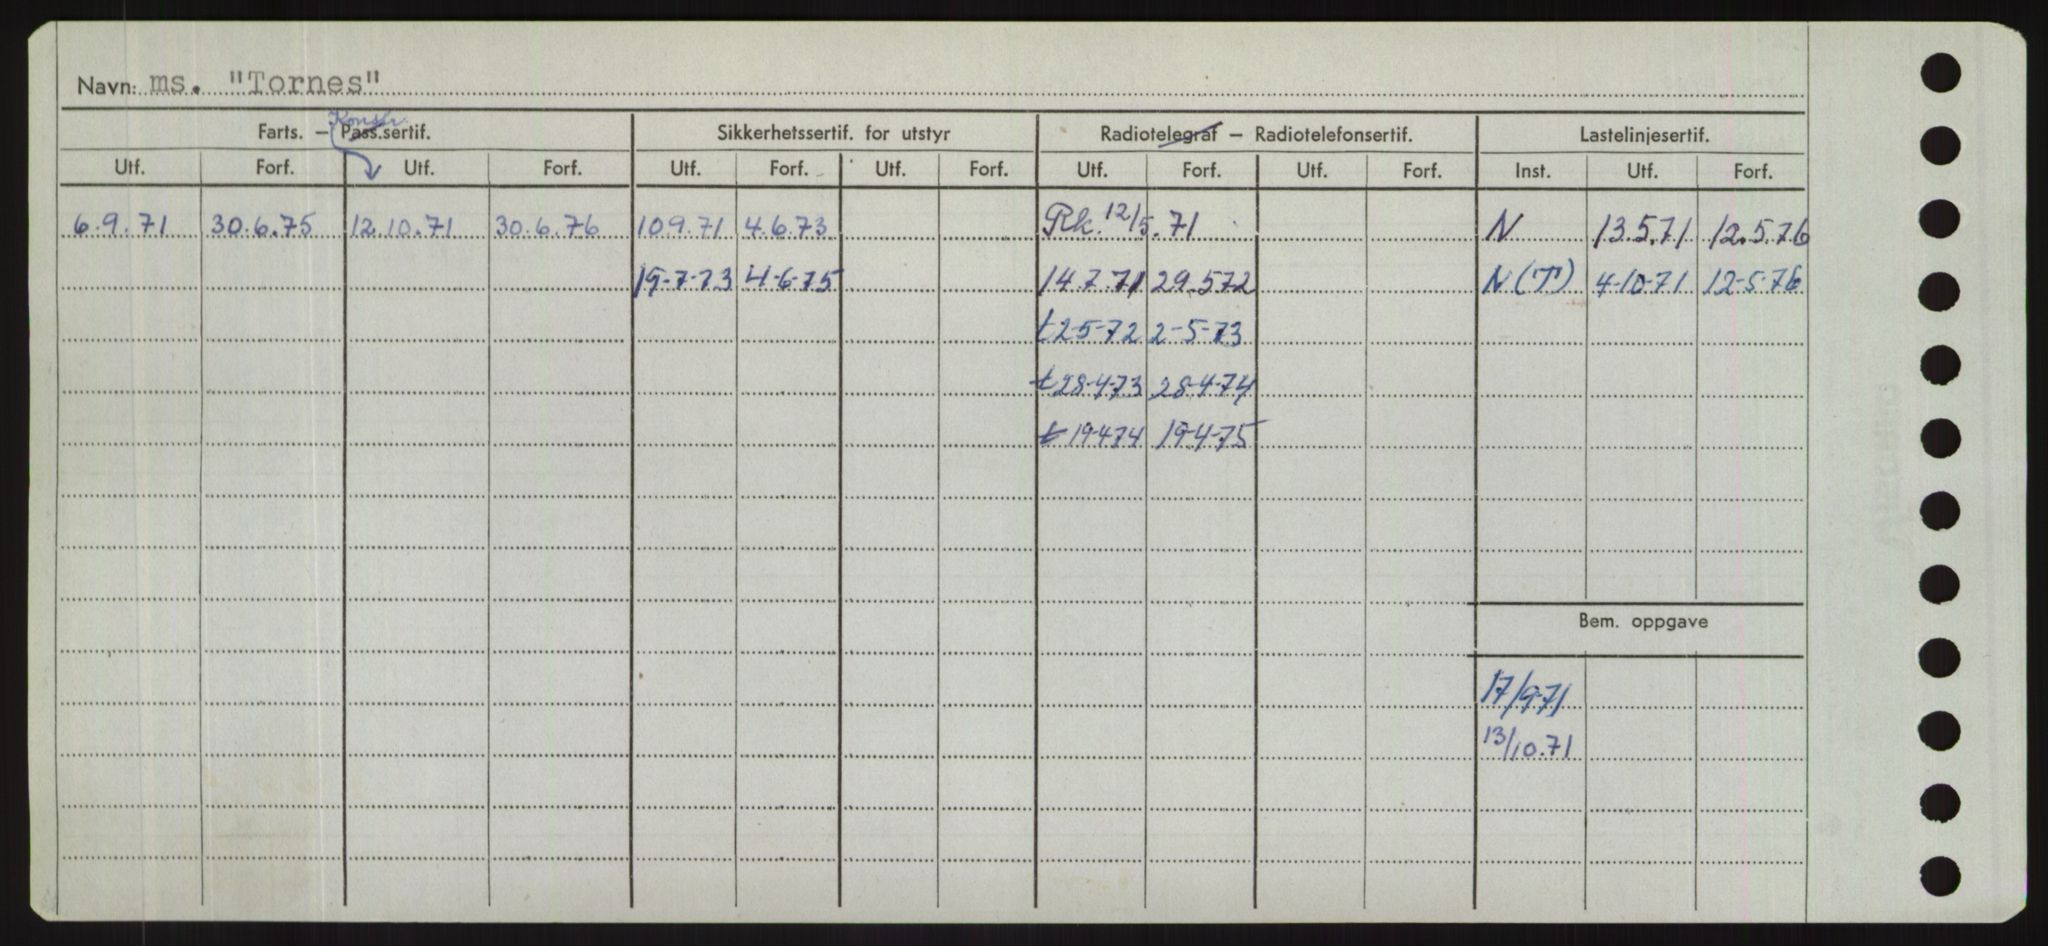 Navn: ms. "Tornes"
Konstr.
Farts. — Pass.sertif. Sikkerhetssertif. for utstyr Radiotelegraf — Radiotelefonsertif. Lastelinjesertif.
Utf. Forf. Utf. Forf. Utf. Forf. Utf. Forf. Utf. Forf. Utf. Forf. Inst. Utf. Forf.
6.9.71 30.6.75 12.10.71 30.6.76 10.9.71 4.6.73 Rk. 12/5.71 N 13.5.71 12.5.76
19-7-73 4-6-75 14.7.71 29.5.72 N(T) 4-10-71 12-5-76
t 2-5-72 2-5-73
t 28-4-73 28-4-74
t 19-4-74 19-4-75
Bem. oppgave
17/9-71
13/10.71